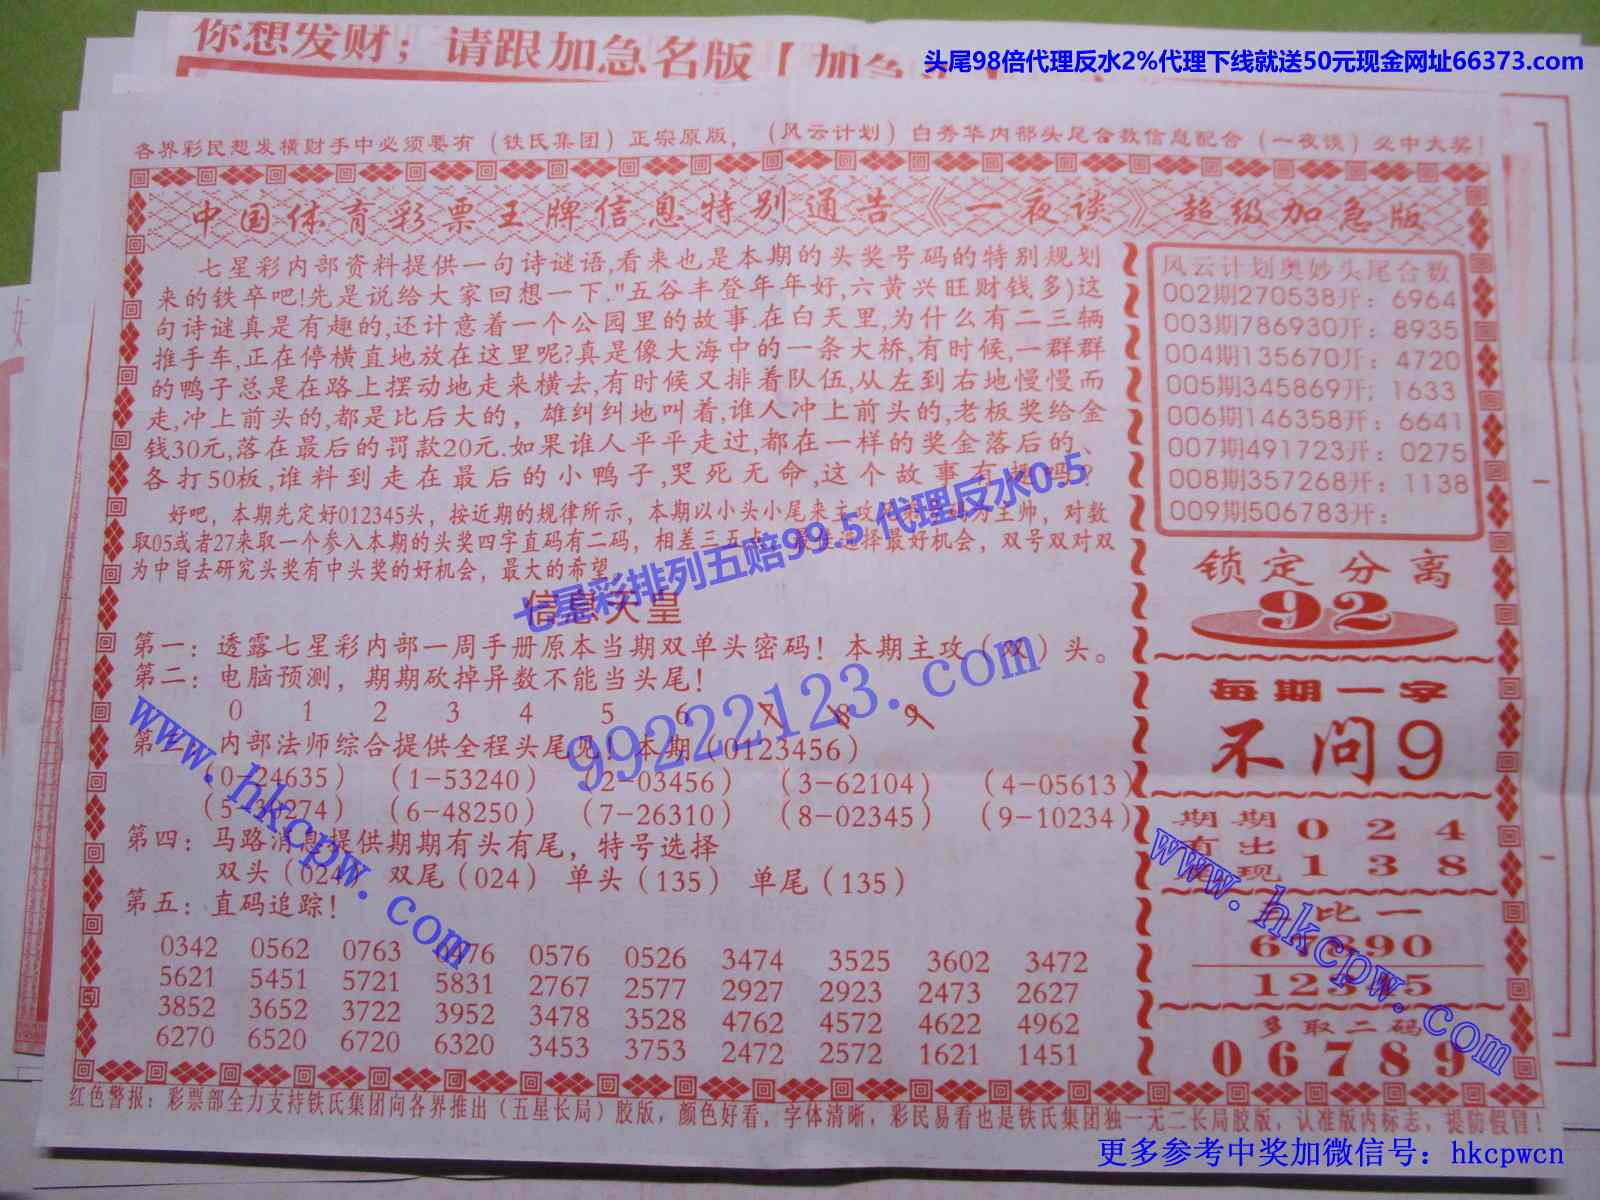 你想发财；请跟加急名版【加急
头尾98倍代理反水2%代理下线就送50元现金网址66373.com
各界彩民想发横财手中必须要有（铁氏集团）正宗原版，（风云计划）白秀华内部头尾合数信息配合（一夜谈）必中大奖！
中国体育彩票王牌信息特别通告《一夜谈》超级加急版
七星彩内部资料提供一句诗谜语,看来也是本期的头奖号码的特别规划
来的铁卒吧!先是说给大家回想一下."五谷丰登年年好,六黄兴旺财钱多)这
句诗谜真是有趣的,还计意着一个公园里的故事.在白天里,为什么有二三辆
推手车,正在停横直地放在这里呢?真是像大海中的一条大桥,有时候,一群群
的鸭子总是在路上摆动地走来横去,有时候又排着队伍,从左到右地慢慢而
走,冲上前头的,都是比后大的，雄纠纠地叫着,谁人冲上前头的,老板奖给金
钱30元,落在最后的罚款20元.如果谁人平平走过,都在一样的奖金落后的、
各打50板,谁料到走在最后的小鸭子,哭死无命,这个故事有趣吗?
好吧，本期先定好012345头，按近期的规律所示，本期以小头小尾来主攻 为主帅，对数
取05或者27来取一个参入本期的头奖四字直码有二码，相差三五 选择最好机会，双号双对双
为中旨去研究头奖有中头奖的好机会，最大的希望
信息天皇
第一：透露七星彩内部一周手册原本当期双单头密码！本期主攻（双）头。
第二：电脑预测，期期砍掉异数不能当头尾！
0 1 2 3 4 5 6 7 8 9
第三：内部法师综合提供全程头尾见！本期（0123456）
（0-24635）（1-53240）（2-03456）（3-62104）（4-05613）
（5-3 274）（6-48250）（7-26310）（8-02345）（9-10234）
第四：马路消息提供期期有头有尾，特号选择
双头（024）双尾（024）单头（135）单尾（135）
第五：直码追踪！
0342 0562 0763 76 0576 0526 3474 3525 3602 3472
5621 5451 5721 5831 2767 2577 2927 2923 2473 2627
3852 3652 3722 3952 3478 3528 4762 4572 4622 4962
6270 6520 6720 6320 3453 3753 2472 2572 1621 1451
风云计划奥妙头尾合数
002期270538开：6964
003期786930开：8935
004期135670开：4720
005期345869开；1633
006期146358开：6641
007期491723开：0275
008期357268开：1138
009期506783开：
锁定分离
92
每期一字
不问9
期期 0 2 4
有出
现 1 3 8
比一
67890
12345
多取二码
06789
红色警报：彩票部全力支持铁氏集团向各界推出（五星长局）胶版，颜色好看，字体清晰，彩民易看也是铁氏集团独一无二长局胶版，认准版内标志，提防假冒！
七星彩排列五赔99.5 代理反水0.5
99222123.com
www.hkcpw.com
www.hkcpw.com
更多参考中奖加微信号：hkcpwcn